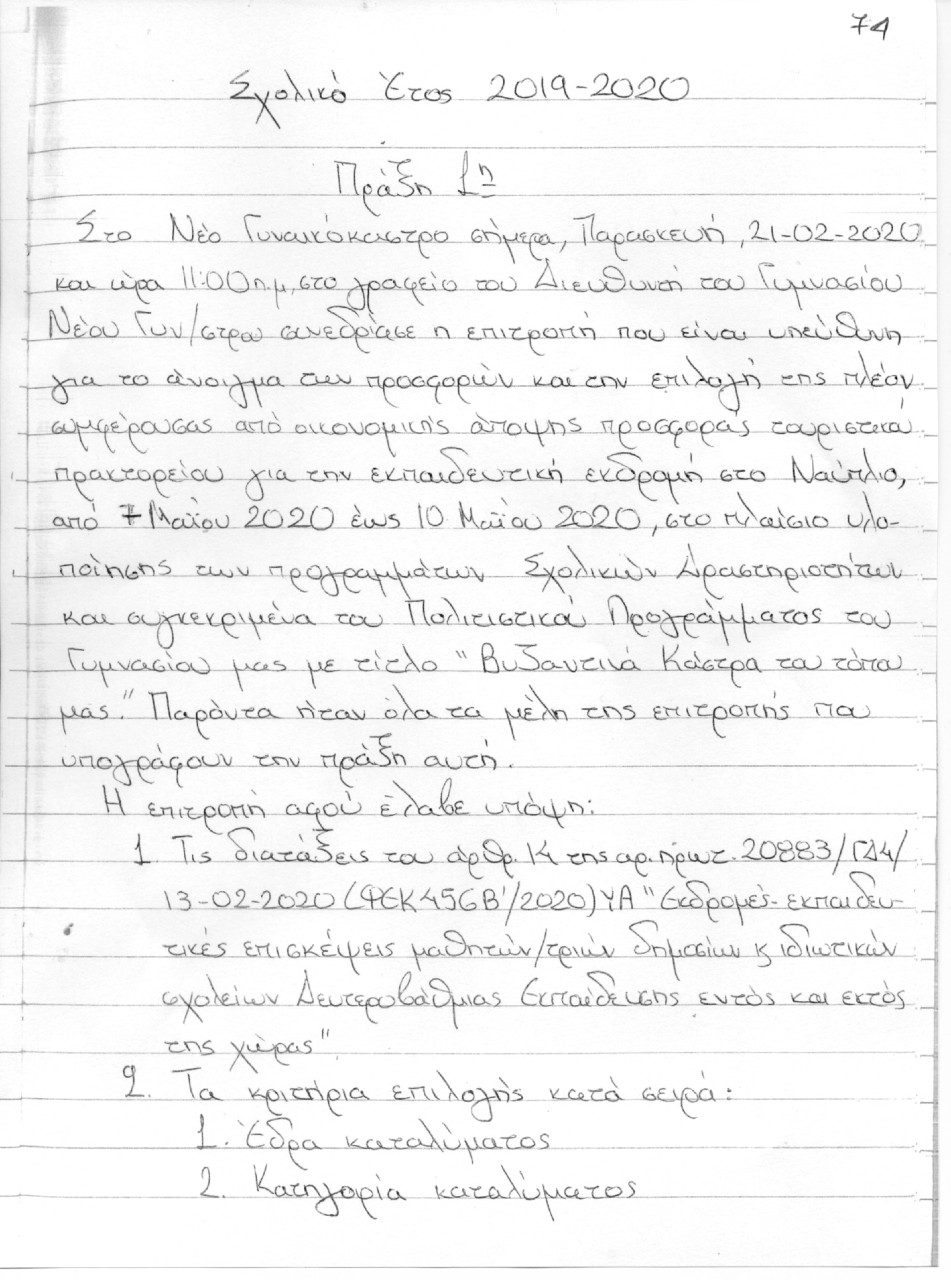 74
Σχολικό Έτος 2019-2020
Πράξη 1η
Στο Νέο Γυναικόκαστρο σήμερα, Παρασκευή, 21-02-2020
και ώρα 11:00 π.μ, στο γραφείο του Διευθυντή του Γυμνασίου
Νέου Γυν/στρου συνεδρίασε η επιτροπή που είναι υπεύθυνη
για το άνοιγμα των προσφορών και την επιλογή της πλέον
συμφέρουσας από οικονομικής άποψης προσφοράς τουριστικού
πρακτορείου για την εκπαιδευτική εκδρομή στο Ναύπλιο,
από 7 Μαΐου 2020 έως 10 Μαΐου 2020, στο πλαίσιο υλο-
ποίησης των προγραμμάτων Σχολικών Δραστηριοτήτων
και συγκεκριμένα του Πολιτιστικού Προγράμματος του
Γυμνασίου μας με τίτλο "Βυζαντινά Κάστρα του τόπου
μας." Παρόντα ήταν όλα τα μέλη της επιτροπής που
υπογράφουν την πράξη αυτή.
Η επιτροπή αφού έλαβε υπόψη:
1. Τις διατάξεις του άρθρ. 14 της αρ. πρωτ. 20883/ΓΔ4/
13-02-2020 (ΦΕΚ 456 Β'/2020) ΥΑ "Εκδρομές- εκπαιδευ-
τικές επισκέψεις μαθητών/τριών δημοσίων κ ιδιωτικών
σχολείων Δευτεροβάθμιας Εκπαίδευσης εντός και εκτός
της χώρας"
2. Τα κριτήρια επιλογής κατά σειρά:
1. Έδρα καταλύματος
2. Κατηγορία καταλύματος